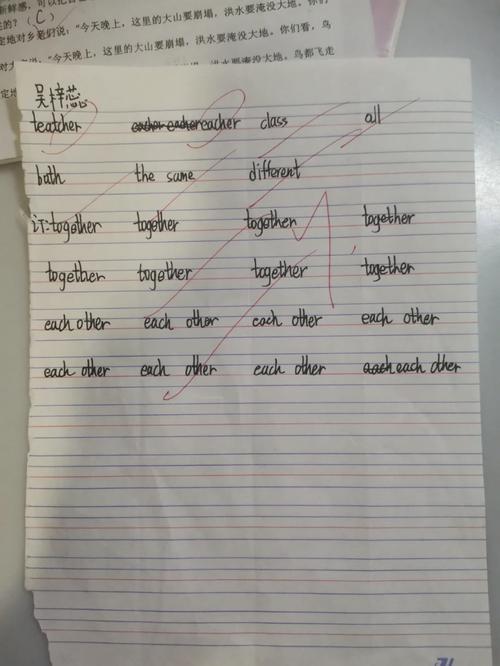 的？（C）
定地对乡亲们说："今天晚上，这里的大山要崩塌，洪水要淹没大地。你们
"今天晚上，这里的大山要崩塌，洪水要淹没大地。你们看，鸟
洪水要淹没大地。鸟都飞走
吴梓芯
teatcher eacher eacher eacher class all
bath the same different
订:together together together together
together together together together
each other each other each other each other
each other each other each other each each other